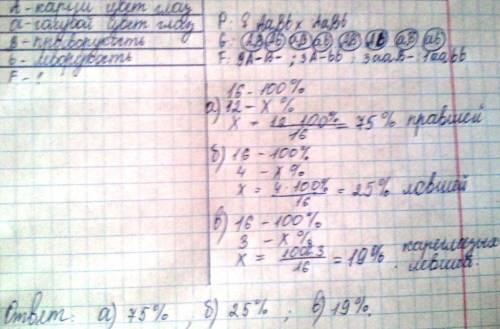 А - карий цвет глаз
а - голубой цвет глаз
В - праворукость
b - леворукость
F - ?
P: ♀ AaBb x AaBb
G: AB Ab aB ab AB Ab aB ab
F: 9A-B- ; 3A-bb ; 3aaB- ; 1aabb
16 - 100%
а) 12 - x %
x = 12·100% / 16 = 75% правшей
б) 16 - 100%
4 - x %
x = 4·100% / 16 = 25% левшей
в) 16 - 100%
3 - x %
x = 100·3 / 16 = 19% кареглазых левшей.
Ответ: а) 75% , б) 25% ; в) 19%.